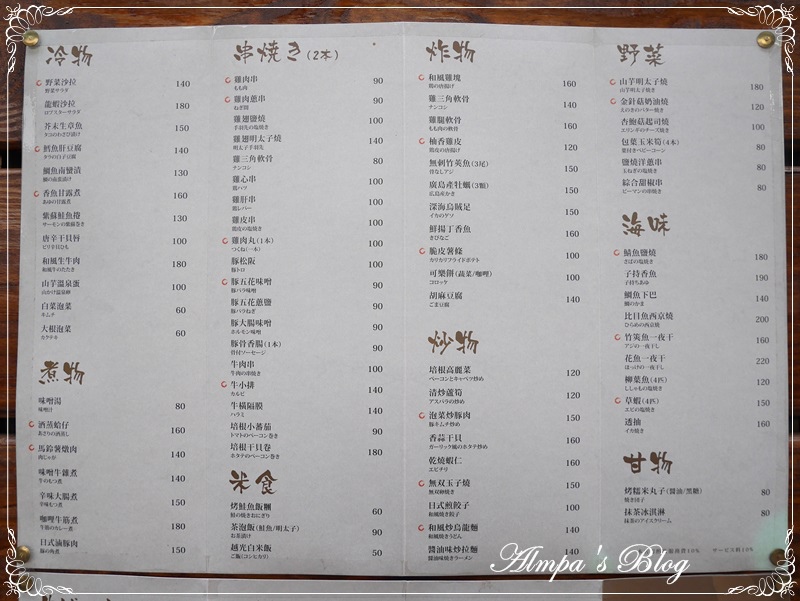 冷物
野菜沙拉 140
野菜サラダ
龍蝦沙拉 180
ロブスターサラダ
芥末生章魚 150
タコのわさび漬け
鱈魚肝豆腐 140
タラの白子豆腐
鯛魚南蠻漬 130
鯛の南蛮漬け
香魚甘露煮 160
あゆの甘露煮
紫蘇鮭魚捲 130
サーモンの紫蘇巻き
唐辛干貝唇 100
ピリ辛貝ひも
和風生牛肉 180
和風牛のたたき
山芋溫泉蛋 100
山かけ温泉卵
白菜泡菜 60
キムチ
大根泡菜 60
カクテキ
煮物
味噌湯 80
味噌汁
酒蒸蛤仔 160
あさりの酒蒸し
馬鈴薯燉肉 140
肉じゃが
味噌牛雜煮 140
牛のもつ煮
辛味大腸煮 150
辛味もつ煮
咖哩牛筋煮 180
牛筋のカレー煮
日式滷豚肉 150
豚の角煮
串焼き(2本)
雞肉串 90
もも肉
雞肉蔥串 90
ねぎ間
雞翅鹽燒 100
手羽先の塩焼き
雞翅明太子燒 140
明太子手羽先
雞三角軟骨 80
ナンコツ
雞心串 100
鶏ハツ
雞肝串 100
鶏レバー
雞皮串 100
鶏皮の塩焼き
雞肉丸(1本) 100
つくね(一本)
豚松阪 100
豚トロ
豚五花味噌 90
豚バラ味噌
豚五花蔥鹽 90
豚バラねぎ
豚大腸味噌 90
ホルモン味噌
豚骨香腸(1本) 90
骨付ソーセージ
牛肉串 100
牛肉の串焼き
牛小排 140
カルビ
牛橫隔膜 140
ハラミ
培根小蕃茄 90
トマトのベーコン巻き
培根干貝卷 180
ホタテのベーコン巻き
米食
烤鮭魚飯糰 60
鮭の焼きおにぎり
茶泡飯(鮭魚/明太子) 90
お茶漬け
越光白米飯 50
ご飯(コシヒカリ)
炸物
和風雞塊 160
鶏の唐揚げ
雞三角軟骨 140
ナンコツ
雞腿軟骨 160
もも肉の軟骨
柚香雞皮 120
鶏皮の唐揚げ
無刺竹筴魚(3尾) 150
骨なしアジ
廣島產牡蠣(3顆) 150
広島産かき
深海烏賊足 150
イカのゲソ
鮮揚丁香魚 160
きびなご
脆皮薯條 100
カリカリフライドポテト
可樂餅(蔬菜/咖哩) 100
コロッケ
胡麻豆腐 140
ごま豆腐
炒物
培根高麗菜 120
ベーコンとキャベツ炒め
清炒蘆筍 120
アスパラの炒め
泡菜炒豚肉 150
豚キムチ炒め
香蒜干貝 160
ガーリック風のホタテ炒め
乾燒蝦仁 160
エビチリ
無双玉子燒 150
無双卵焼き
日式煎餃子 100
和風焼き餃子
和風炒烏龍麵 140
和風焼きうどん
醬油味炒拉麵 140
醤油味焼きラーメン
野菜
山芋明太子燒 180
山芋明太子焼き
金針菇奶油燒 120
えのきのバター焼き
杏鮑菇起司燒 100
エリンギのチーズ焼き
包葉玉米筍(4本) 80
葉付きベビーコーン
鹽燒洋蔥串 80
玉ねぎの塩焼き
綜合甜椒串 80
ピーマンの串焼き
海味
鯖魚鹽燒 180
さばの塩焼き
子持香魚 190
子持ちあゆ
鯛魚下巴 140
鯛のかま
比目魚西京燒 200
ひらめの西京焼
竹筴魚一夜干 160
アジの一夜干し
花魚一夜干 220
ほっけの一夜干し
柳葉魚(4匹) 120
ししゃもの塩焼き
草蝦(4匹) 150
エビの塩焼き
透抽 160
イカ焼き
甘物
烤糯米丸子(醬油/黑糖) 80
焼き団子
抹茶冰淇淋 80
抹茶のアイスクリーム
服務費10% サービス料10%
Almpa's Blog